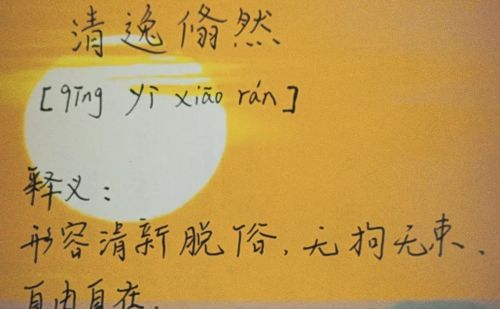 清逸翛然
[qīng yì xiāo rán]
释义:
形容清新脱俗,无拘无束、
自由自在.